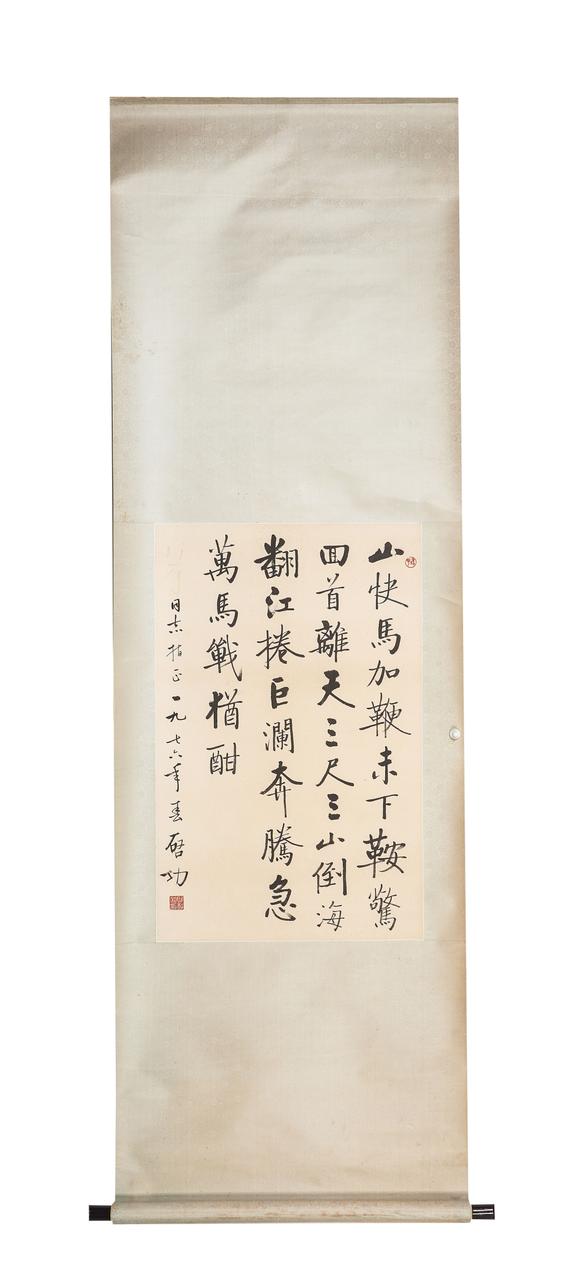 山快馬加鞭未下鞍驚
回首離天三尺三山倒海
翻江捲巨瀾奔騰急
萬馬戰猶酣
同志指正一九七六年春啓功